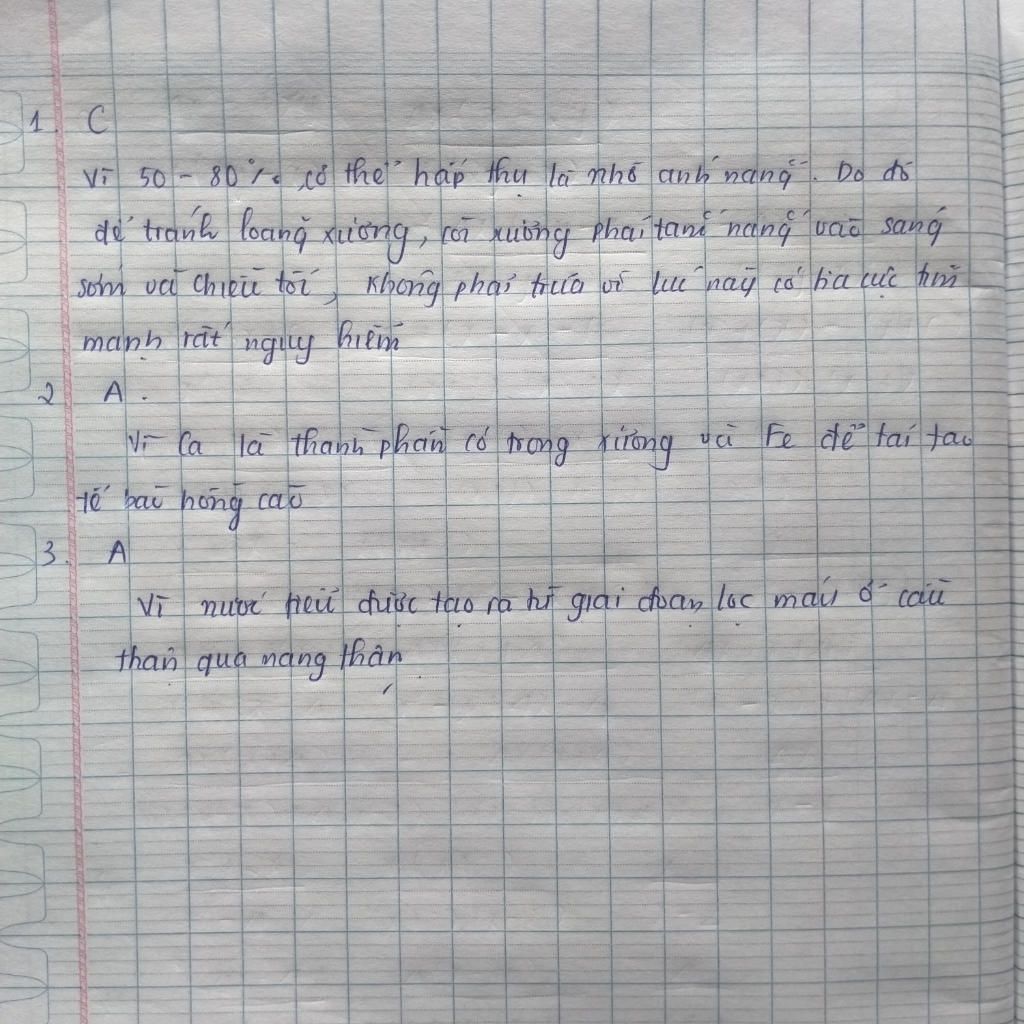 1. C
Vì 50 - 80% cơ thể hấp thụ là nhờ ánh nắng. Do đó
để tránh loãng xương, còi xương phải tắm nắng vào sáng
sớm và chiều tối, không phải trưa vì lúc này có tia cực tím
mạnh rất nguy hiểm
2 A.
Vì Ca là thành phần có trong xương và Fe để tái tạo
tế bào hồng cầu
3. A
Vì nước tiểu được tạo ra từ giai đoạn lọc máu ở cầu
thận qua nang thận